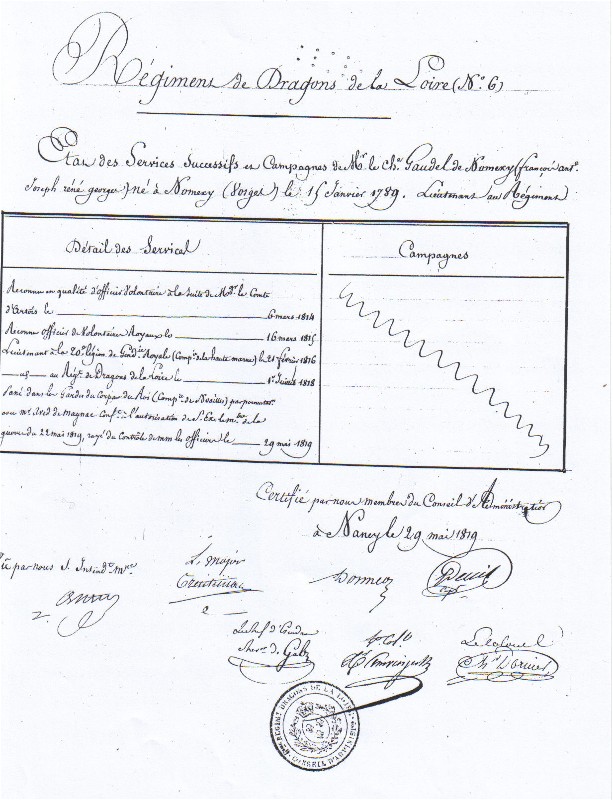 Régiment de Dragons de la Loire (N.º 6)
Etat des Services Successifs et Campagnes de Mr. le Chr. Gaudel de Nomexy (françois ant.e
Joseph rené georges) né à Nomexy (Vosges) le 15 Janvier 1789. Lieutenant au Régiment
Détail des Services
Campagnes
Reconnu en qualité d'officier Volontaire à la Suite de Mgr. le Comte
d'Artois le 6 mars 1814
Reconnu officier de Volontaires Royaux le 16 mars 1815
Lieutenant à la 20e légion de Gend.rie Royale (Comp.ie de la haute marne) le 21 février 1816
au Régt. de Dragons de la Loire le 1er 1818
Passé dans les Gardes du Corps du Roi (Comp.ie de Noailles) par permutation
avec mr. de magnac Conf.t à l'autorisation de S. Ex. le m.tre de la
guerre du 22 mai 1819, rayé du Contrôle de mm. les officiers le 29 mai 1819
Certifié par nous membres du Conseil d'Administration
à Nancy le 29 mai 1819
par nous S. Intend.t mre
S. major
Le chef d'
Lt Cel
Le Colonel
RÉGIMENT DRAGONS DE LA LOIRE
CONSEIL D'ADMINISTRATION